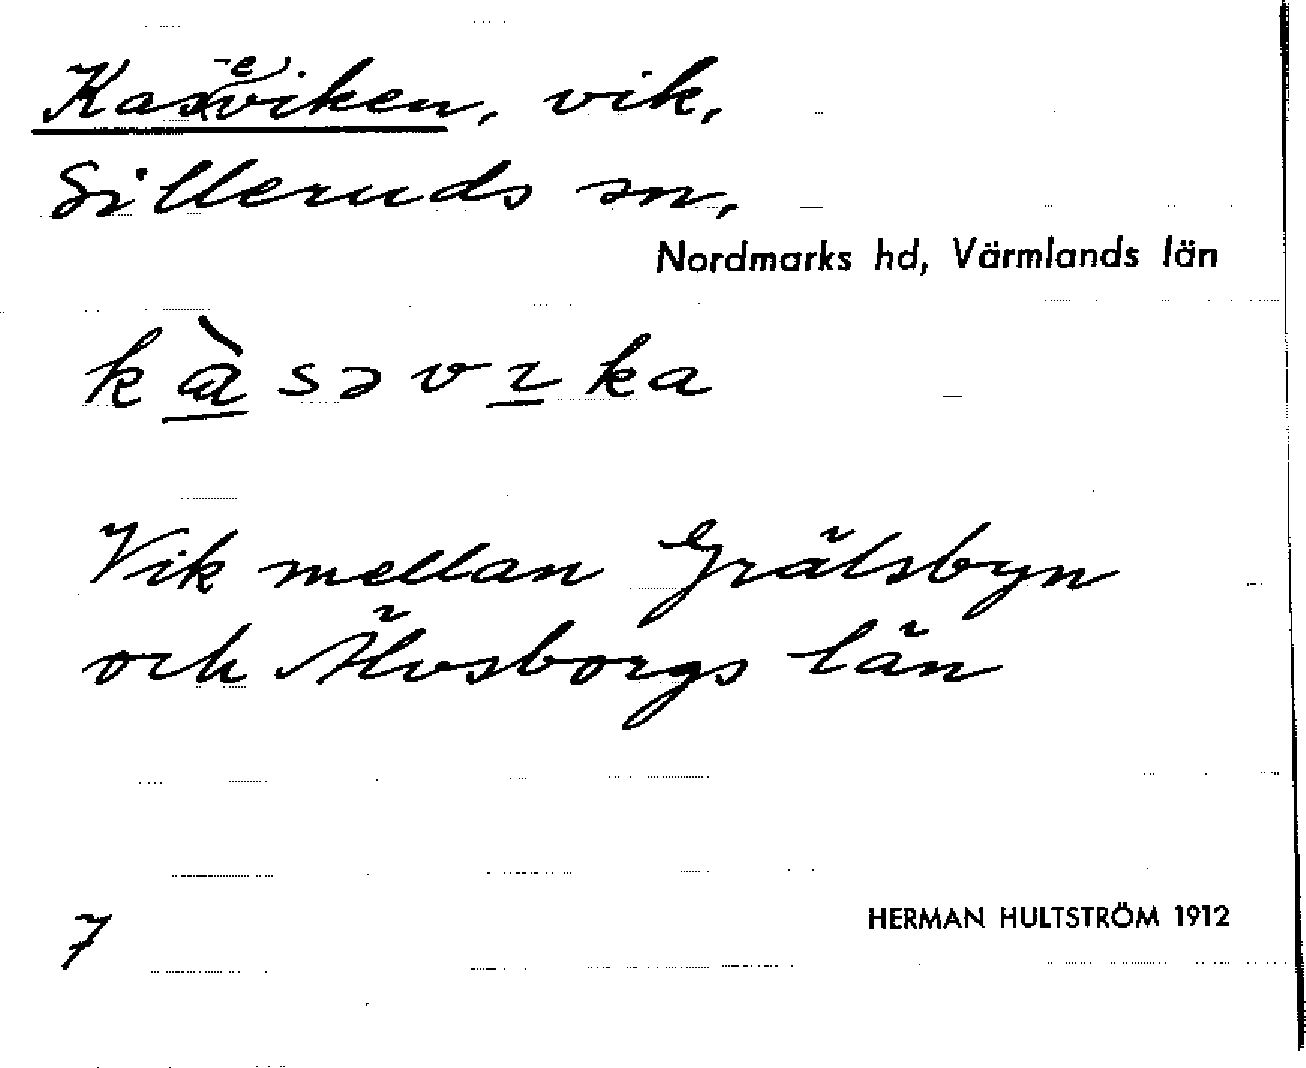 Kaseviken, vik,
Silleruds sn,
Nordmarks hd, Värmlands län
kàsəvıka
Vik mellan Grälsbyn
och Älvsborgs län
7
HERMAN HULTSTRÖM 1912